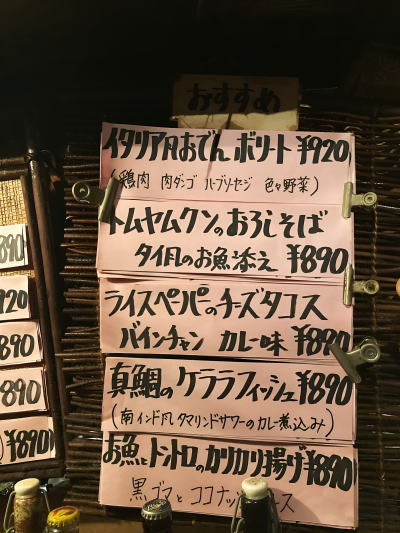 おすすめ
イタリア風おでん ボリート ¥920
(鶏肉 肉ダンゴ ハーブソーセジ 色々野菜)
トムヤムクンのおろしそば
タイ風のお魚添え ¥890
ライスペーパーのチーズタコス
バインチャン カレー味 ¥890
真鯛のケララフィッシュ ¥890
(南インド風 タマリンドサワーのカレー煮込み)
お魚とトントロのカリカリ揚げ ¥890
黒ゴマとココナッツ
890
920
890
890
¥890